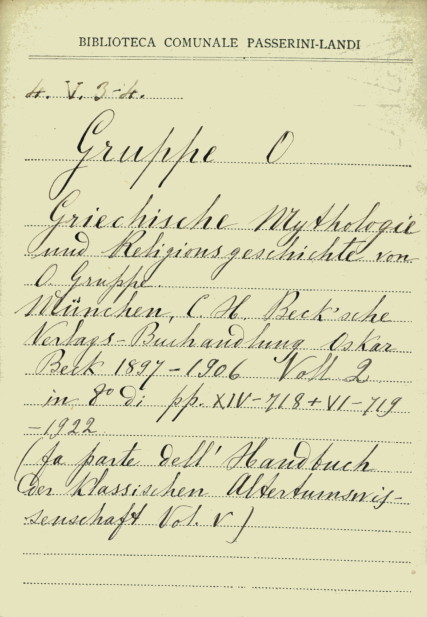 BIBLIOTECA COMUNALE PASSERINI-LANDI
4. V. 3-4.
Gruppe O
Griechische Mythologie
und Religionsgeschichte von
O. Gruppe.
München, C. H. Beck'sche
Verlags-Buchhandlung Oskar
Beck 1897-1906 Voll 2
in 8° di pp. XIV-718+VI-719
-1922
(fa parte dell' Handbuch
der klassischen Altertumswis-
senschaft Vol. V)